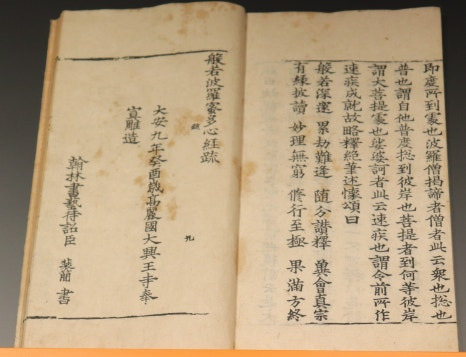 即度所到處也波羅僧揭諦者僧者此云衆也揔也
普也謂自他普度揔到彼岸也菩提者到何等彼岸
謂大菩提處也娑婆訶者此云速疾也謂令前所作
速疾成就故略釋絶筆述懷頌曰
般若深邃 累劫難逢 隨分讃釋 冀會真宗
有緣披讀 妙理無窮 修行至極 果滿方終
般若波羅蜜多心經疏
九
大安九年癸酉歲高麗國大興王寺奉
宣雕造
翰林書藝待詔臣 裴 書